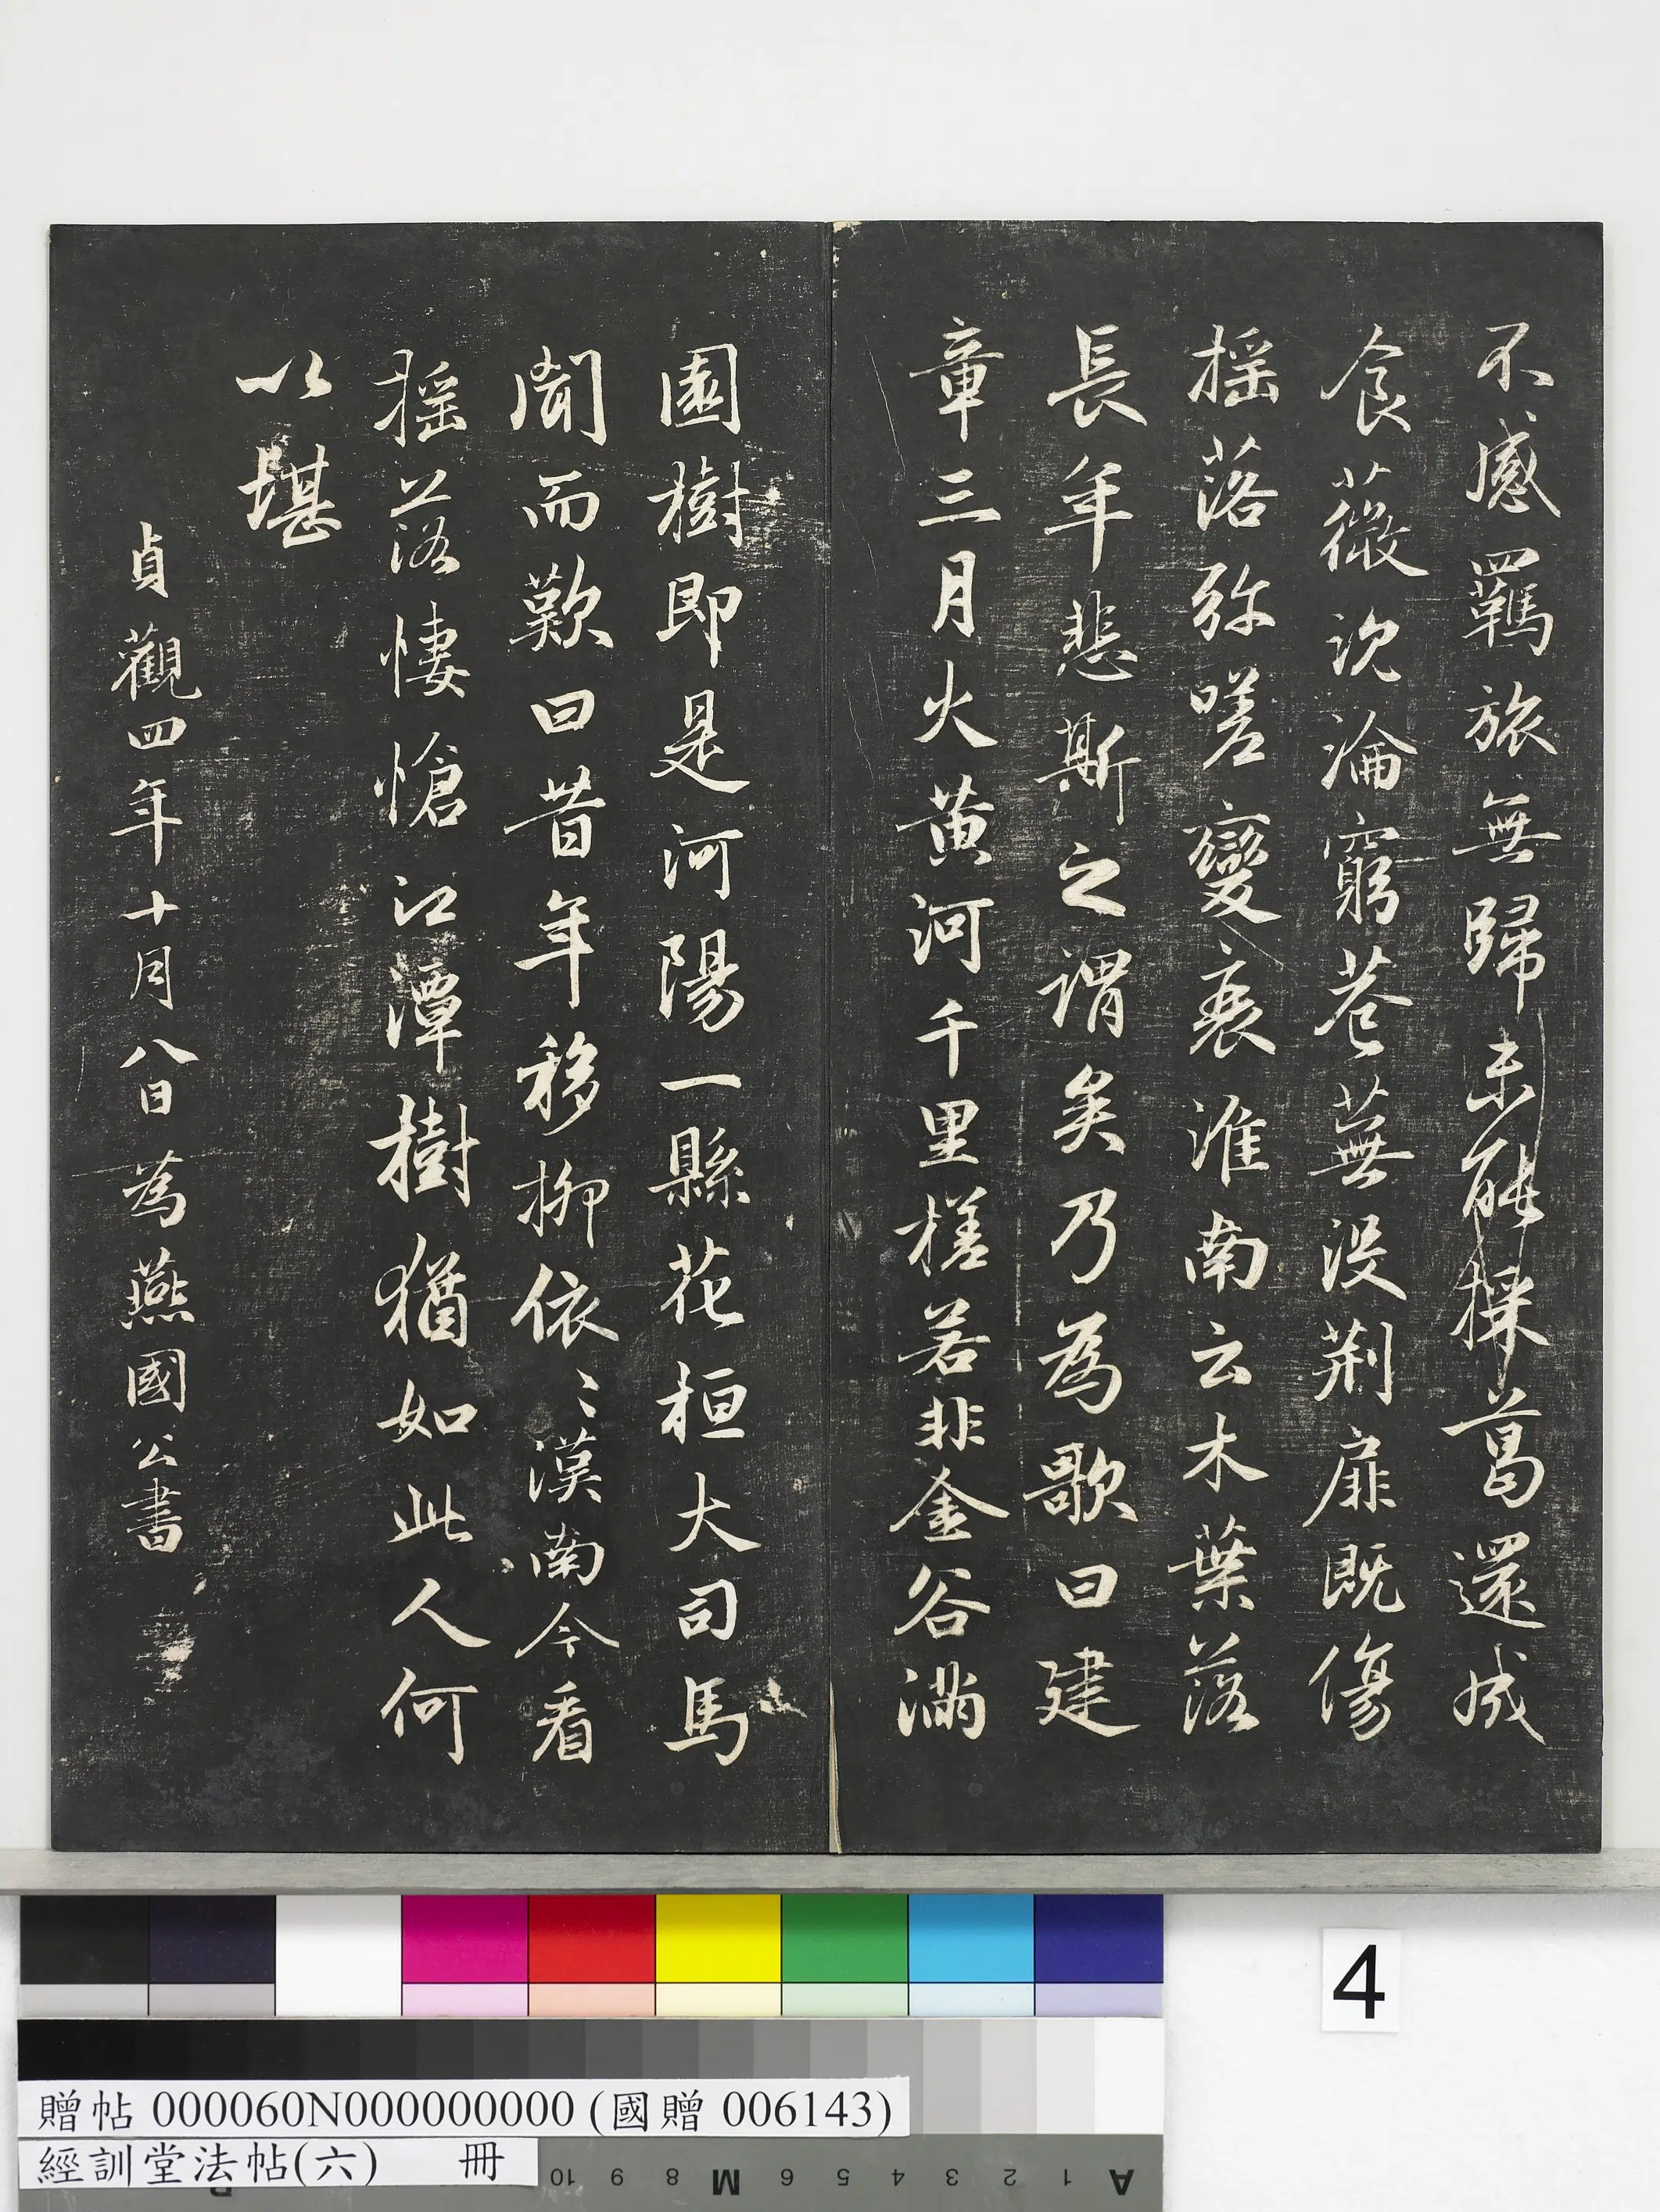 不感羈旅無歸未能採葛還成
食薇沉淪窮巷蕪没荆扉既傷
摇落弥嗟變衰淮南云木葉落
長年悲斯之謂矣乃為歌曰建
章三月火黄河千里槎若非金谷滿
園樹即是河陽一縣花桓大司馬
聞而歎曰昔年移柳依〻漢南今看
摇落悽愴江潭樹猶如此人何
以堪
貞觀四年十月八日為燕國公書
4
贈帖 000060N000000000 (國贈 006143)
經訓堂法帖(六) 冊
10 9 8 M 6 5 4 3 2 1 A